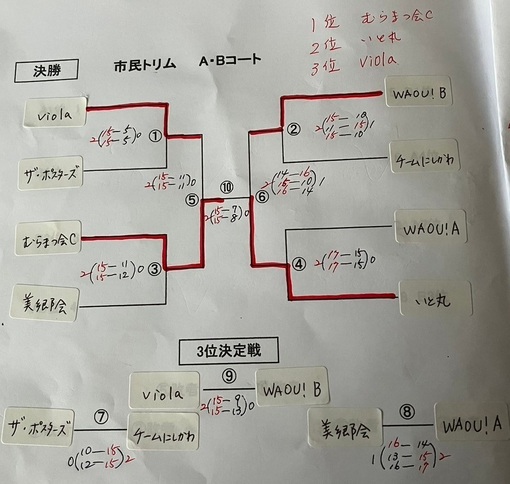 1位 むらまつ会C
2位 いと丸
3位 viola
市民トリム A・Bコート
決勝
viola
WAOU! B
① 2(15－5 15－5)0
② 2(15－10 11－15 15－10)1
ザ・ポスターズ
チームにしがわ
⑤ 2(15－11 15－11)0
⑩ 2(15－7 15－8)0
⑥ 2(14－16 15－10 16－14)1
むらまつ会C
WAOU! A
③ 2(15－11 15－12)0
④ 2(17－15 17－15)0
美郷会
いと丸
3位決定戦
viola ⑨ WAOU! B
2(15－9 15－13)0
ザ・ポスターズ ⑦ チームにしがわ
0(10－15 12－15)2
美郷会 ⑧ WAOU! A
1(16－14 13－15 16－17)2